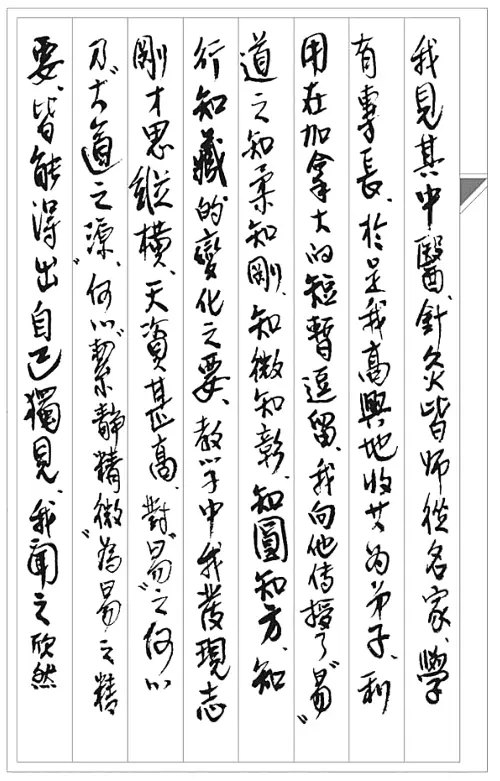 我見其中醫、針灸皆师從名家、學
有專長、於是我高興地收其为弟子、利
用在加拿大的短暫逗留、我向他传授了“易”
道之知柔知剛、知微知彰、知圓知方、知
行知藏的變化之要、教学中我發現志
剛才思縱橫、天資甚高、對“易”之何以
乃大道之源、何以“絜静精微”為易之精
要、皆能得出自己獨見、我聞之欣然